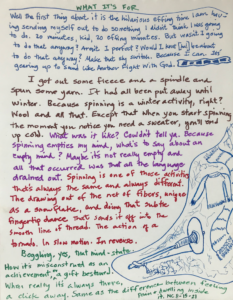 WHAT IT'S FOR
Well the first thing about it is the hilarious effing
sending myself out to do something I didn't think I was going
to do. 10 minutes, kid, 10 effing minutes. But wasn't I going
to do that anyway? Aren't I perfect? Would I not have
to do that anyway? Make this sortie. Because I can
gearing up to Send Me Another Fight With God.
I got out some fleece and a spindle and
spun some yarn. It had all been put away until
winter. Because spinning is a winter activity, right?
Wool and all that. Except that when you start spinning
the moment you notice you need a sweater, you'll end
up cold. What was it like? Couldn't tell ya. Because
spinning empties my mind, what's to say about an
empty mind? Maybe it's not really empty and
all that occurred was that all the language
drained out. Spinning is one of those activities
that's always the same and always different.
The drawing out of the net of fibers, unique
as a snowflake, and doing that subtle
fingertip dance that sends it off into the
smooth line of thread. The action of a
tornado. In slow motion. In reverse.
Boggling, yes, that mind-state.
How it's misconstrued as an
achievement, a gift bestowed.
When really it's always there,
a click away. Same as the difference between looking
from and getting inside
it.